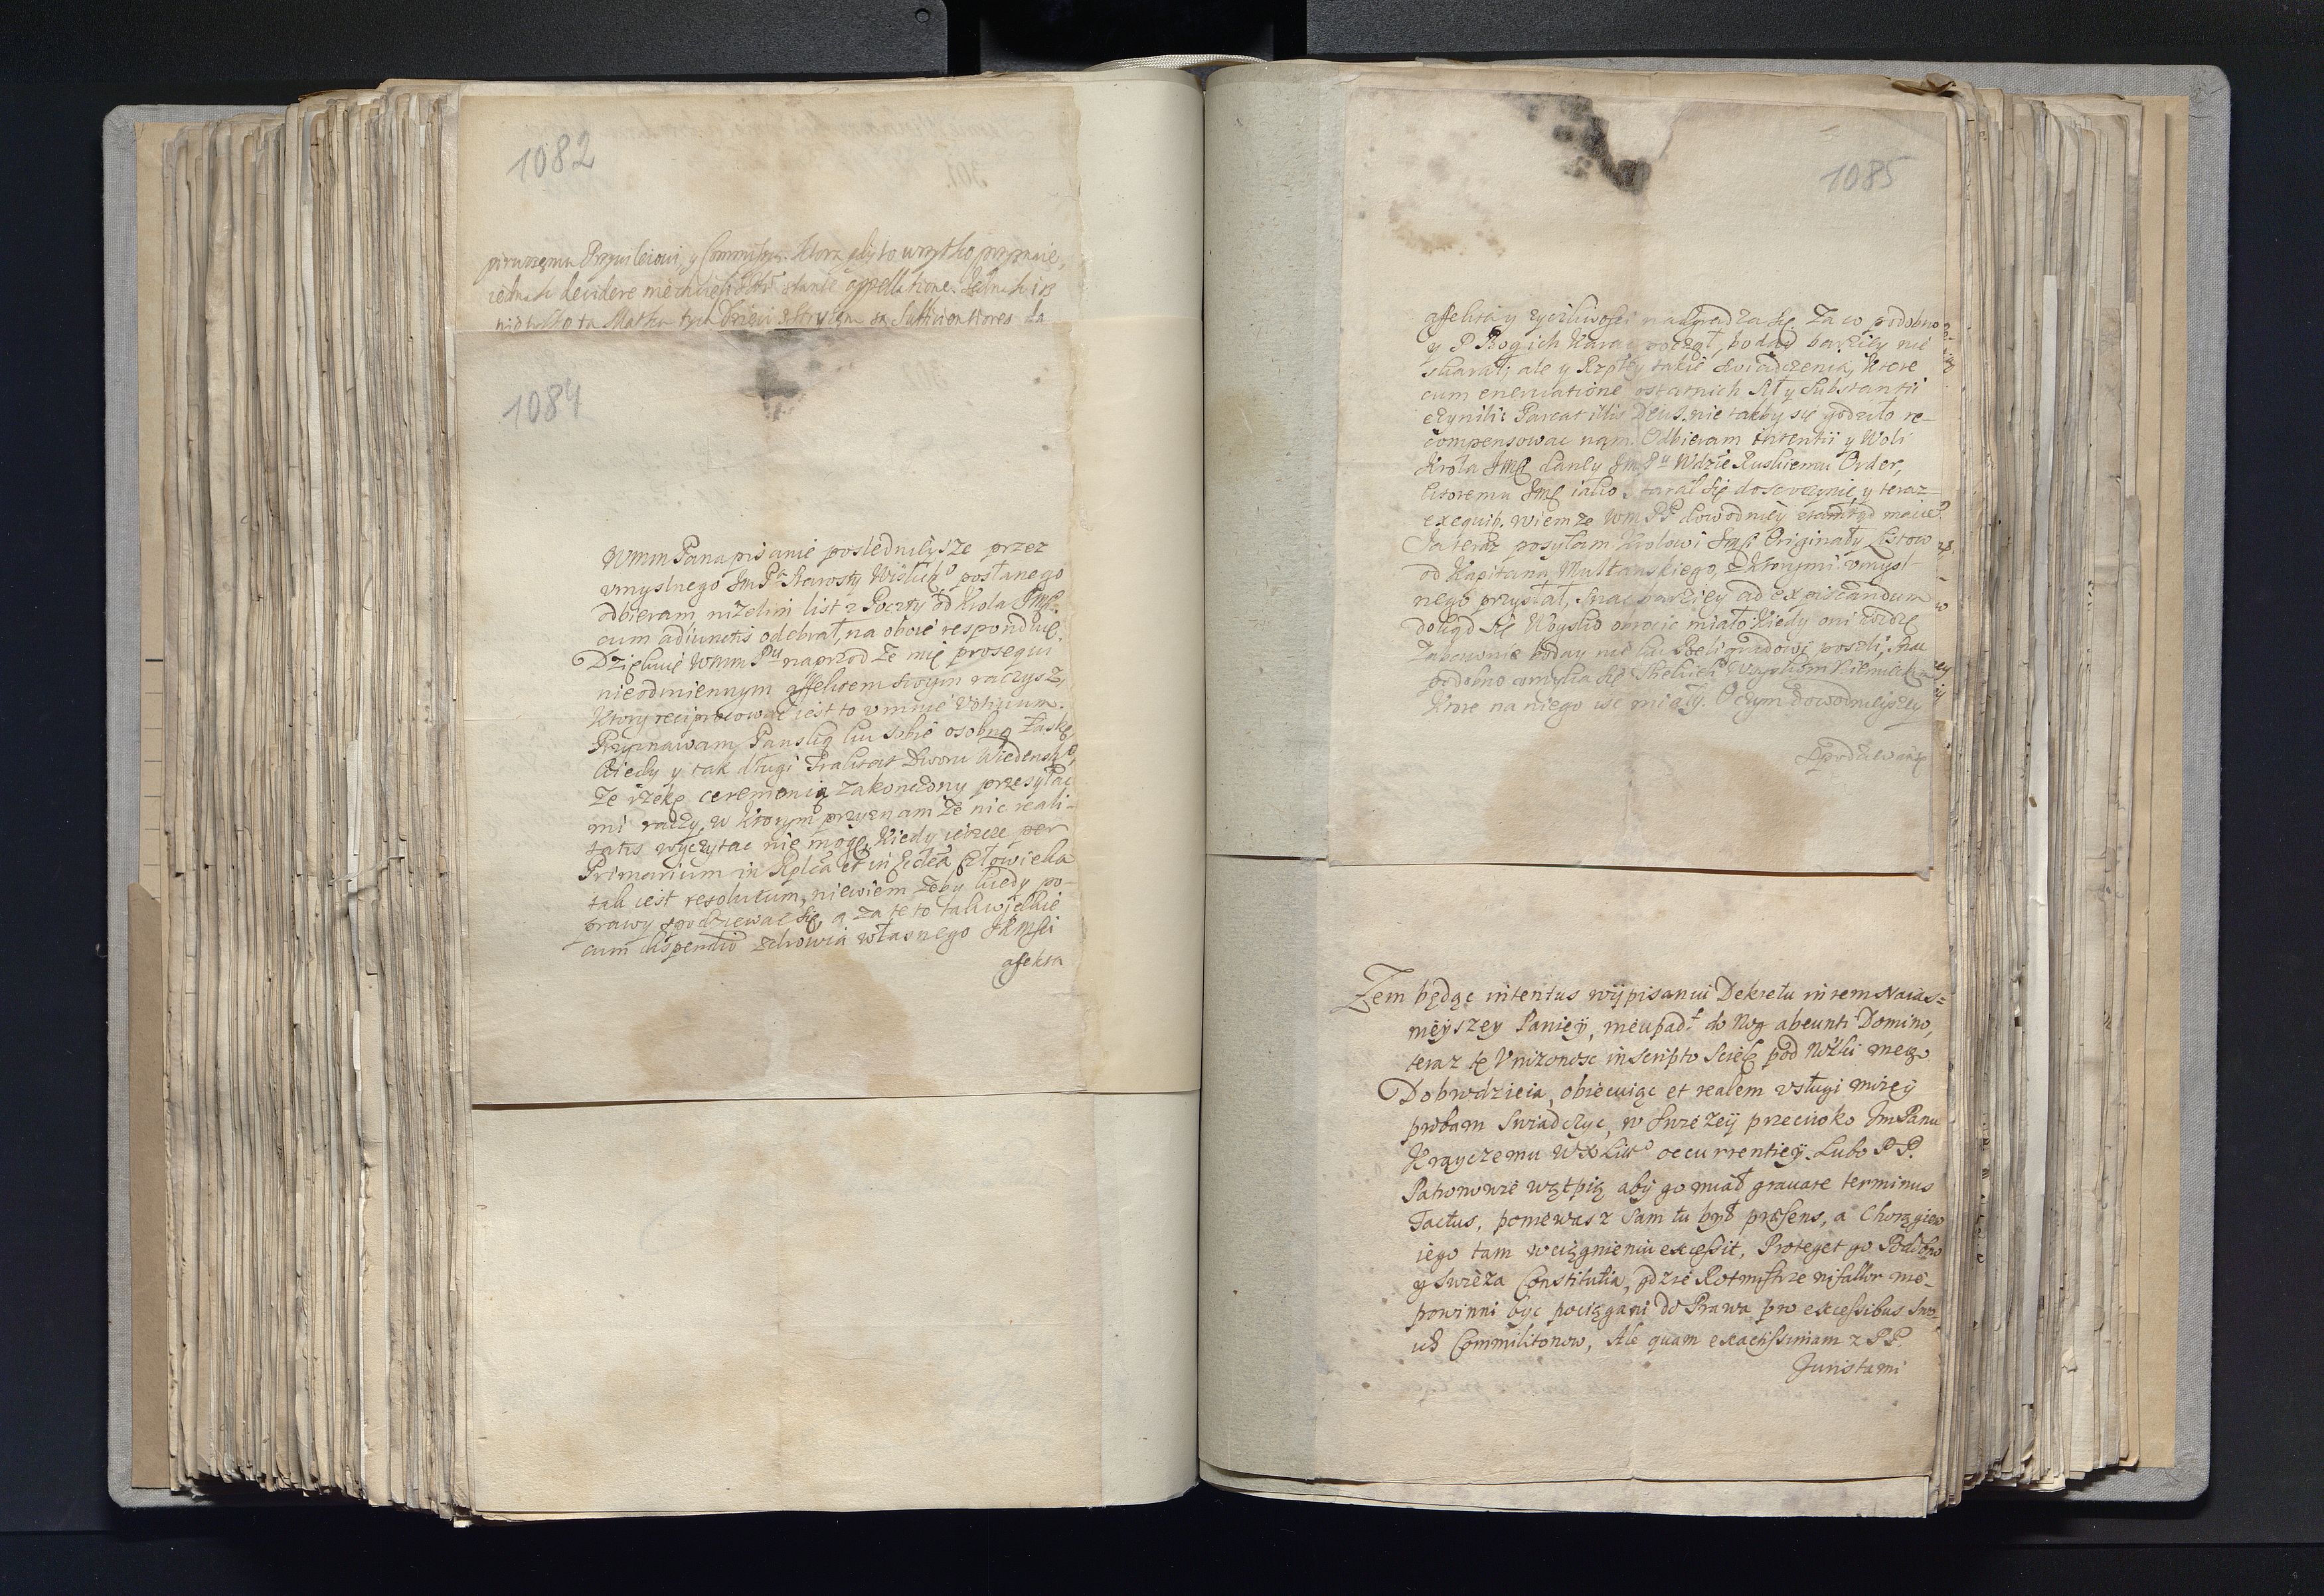 1082
pierwszemu Przywileiowi, y Commissii. Ktora gdy to wszytko przyznaie,
iednak decidere niechcieli stante appellatione. Jednak is
ta Matka tych Dzieci sufficientiores da
1084
WMM Pana pisanie poslednieysze przez
vmyslnego Jm Pa Starosty Wislickº posłanego
odbieram, niżelim list z Poczty od Krola Jmci
cum adiunctis odebrał, na oboie responduię.
Dziękuię WMM Pu naprzod że mię prosequi
nieodmiennym affektem swym raczysz,
ktory reciprocować iest to v mnie votivum.
Przyznawam Panską ku sobie osobną łaskę,
kiedy y tak długi Traktat Dworu Wiedenskº,
że rzekę ceremonią zakonczony przesyłać
mi raczy, w ktorym przyznam że nic reali-
tatis wyczytac nie mogę, kiedy ieszcze per
Primarium in Rplca et in Eccla człowieka
tak iest resolutum, niewiem żeby kiedy po-
prawy spodziewac się, a za te to tak wielkie
cum dispendio zdrowia własnego JKMsci
afekta
1085
afekta y życzliwosci nadgradza się. Za co podobno
y P. Bog ich karac począł, boday barziey nie
skarał; ale y Rzptey takie swiadczenia, ktore
cum enervatione ostatnich sił y substantii
czynili: Parcat illis Deus, nie takby się godziło re-
compensowac nam. Odbieram intentii y Woli
Krola Jmci dany Jm Pu Wdzie Ruskiemu Order,
ktoremu Jmc iako starał się dosyc y teraz
exequit. wiem że WM PP dowodniey ztamtąd macie.
Ja teraz posyłam Krolowi Jmci Originały Listow
od Kapitana Multanskiego, z ktorymi vmysl-
nego przysłał, snac barziey ad expiscandum
dokąd się Woysko obrocic miało: kiedy oni
Zabawnie boday nie ku Beligradowi poszli,
podobno vmyka się Woyskom Niemieckim
ktore na niego isc miały. O czym dowodnieyszey
spodziewam
Zem będąc intentus wypisaniu Dekretu in rem Naias-
nieyszey Paniey, nieupadł do Nog abeunti Domino,
teraz tę Vnizonosc in scripto scielę pod Nożki mego
Dobrodzieia, obiecuiąc et realem vsługi moiey
probam swiadczyc, w swieżey przeciwko Jm Panu
Krayczemu WXLitº occurrentiey. Lubo PP.
Patronowie wątpią aby go miał gravare terminus
Tactus, poniewasz sam tu był præsens, a Chorągiew
iego tam w ciągnieniu excessit, Proteget go Podobno
y swieża Constitutia, gdzie Rotmistrze ni fallor nie-
powinni być pociągani do Prawa pro excessibus swo-
ich Commilitonow, Ale quam exactissimam z PP.
Juristami